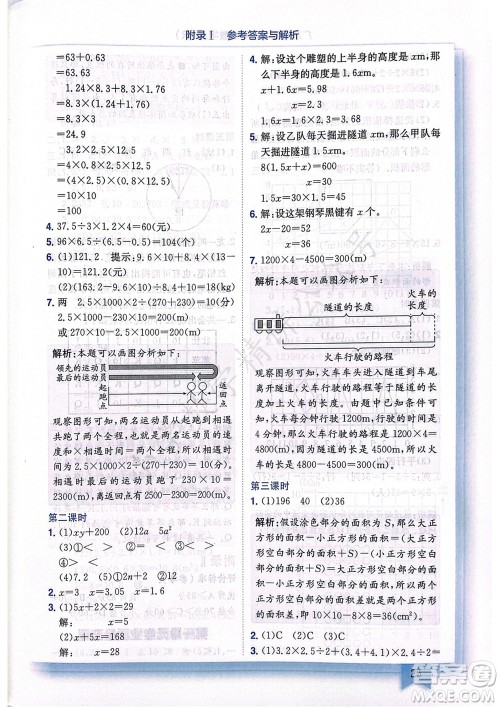 附录Ⅰ 参考答案与解析
=63+0.63
=63.63
1.24×8.3+8.3×1.76
=8.3×(1.24+1.76)
=8.3×3
=24.9
3.2×2.5×12.5
=(4×0.8)×2.5×12.5
=(4×2.5)×(0.8×12.5)
=10×10
=100
4. 37.5÷3×1.2×4=60(元)
5. 96×6.5÷(6.5-0.5)=104(个)
6. (1)121.2 提示:9.6×10+8.4×3=121.2
(2)(163.2-9.6×10)÷8.4+10=18(kg)
7. 两 2.5×1000×2÷(270+230)=10(分)
2.5×1000-230×10=200(m)
或270×10-2.5×1000=200(m)
解析:本题可以画图分析如下:
领先的运动员
最后的运动员
相遇点
返回点
观察图形可知,两名运动员从起跑到相遇
共跑了两个全程,也就是从起跑到相遇两
名运动员一共跑了两个2.5km,相遇时间
为2.5×1000×2÷(270+230)=10(分),相
遇时最后的运动员跑了230×10=
2300(m),离返回点还有2.5×1000-
2300=200(m)。
第二课时
1. (1)xy+200 (2)12a 5a²
(3)① < > ② > < ③ < >
(4)7.2 ÷1.2 ÷2
2. x=3 x=3.05 x=1.6
3. (1)5x+2×2=29
解: x=5
(2)2x+2x÷2=18
解: x=6
4. 解:设这个雕塑的上半身的高度是xm,那
么下半身的高度是1.6xm。
x+1.6x=5.98
x=2.3
1.6x=1.6×2.3=3.68
5. 解:设乙队每天掘进隧道xm,那么甲队每
天掘进隧道1.5xm。
8(1.5x+x)=600
x=30
1.5x=30×1.5=45
6. 解:设这架钢琴黑键有x个。
2x-20=52
x=36
7. 1200×4-4500=300(m)
解析:本题可以画图分析如下:
隧道的长度
火车的
长度
火车行驶的路程
观察图形可知,火车车头进入隧道到车尾
离开隧道所行驶的路程等于隧道的长度
加上火车的长度。火车4分钟行驶的路程
=火车每分钟行驶的路程×行驶的时间=
1200×4=4800(m)。火车的长度=火车
4分钟行驶的路程-隧道的长度=1200×
4-4500=4800-4500=300(m)。
第三课时
1. (1)196 40 (3)36
解析:假设涂色部分的面积为S,那么大正
方形的面积-小正方形的面积=(大正方
形空白部分的面积+S)-(小正方形空白
部分的面积+S)=大正方形空白部分的
面积-小正方形空白部分的面积。所以空
白部分的面积差,即大正方形与小正方形
的面积差,即10×10-8×8=36(cm²)。
2. (1)C (2)C
3. (1)3.2+2.5÷(1.4-0.4)÷2=